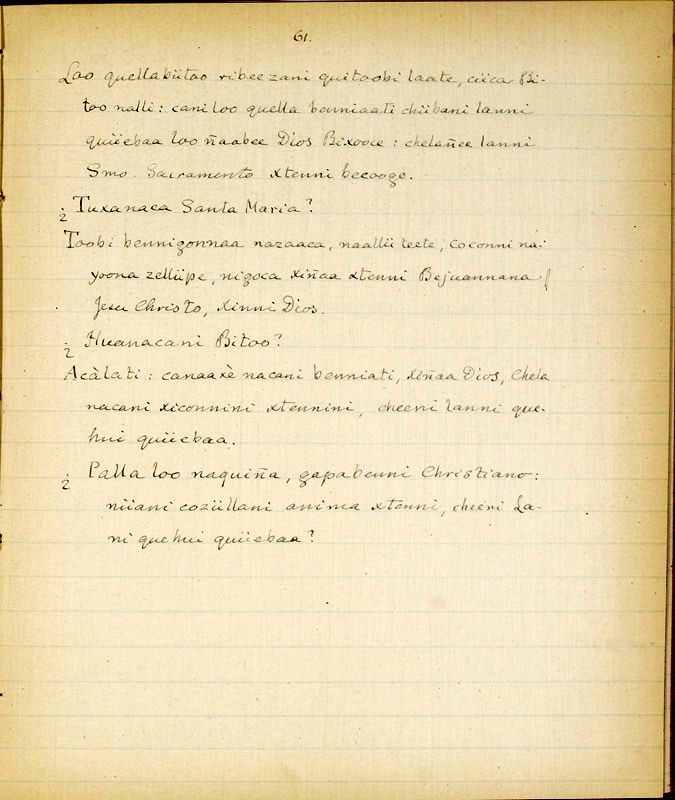 61.
Loo quellabiitoo ribeezani quitoobi laate, ciica Bi-
too nalli: cani loo quella benniaati chiibani lanni
quiiebaa loo ñaabee Dios Bixooce: chelañee lanni
Smo. Sacramento xtenni becooge.
¿ Tuxanaca Santa Maria?
Toobi bennigonnaa nazaaca, naallii leete, coconni na-
yoona zelliipe, nigoca xiñaa xtenni Bejuannana
Jesu Christo, xinni Dios.
¿ Huanacani Bitoo?
Acàlati: canaaxè nacani benniati, xiñaa Dios, chela
nacani xiconnini xtennini, cheeni lanni que-
hui quiiebaa.
¿ Palla loo naquiña, gapabenni Christiano:
niiani coziillani anima xtenni, cheeni La-
ni quehui quiiebaa?